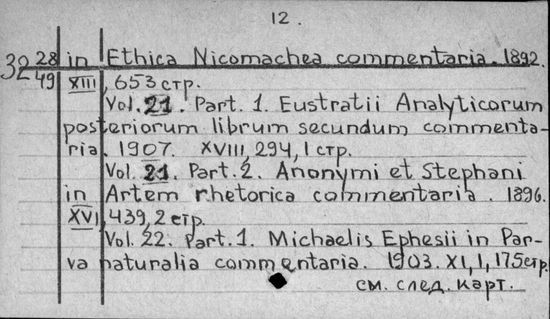 12.
32 28 in Ethica Nicomachea commentaria. 1892.
49 XIII, 653 стр.
Vol. 21. Part. 1. Eustratii Analyticorum
posteriorum librum secundum commenta-
ria. 1907. XVIII, 294, 1 стр.
Vol. 21. Part. 2. Anonymi et Stephani
in Artem rhetorica commentaria. 1896.
XVI, 439, 2 стр.
Vol. 22. Part. 1. Michaelis Ephesii in Par-
va naturalia commentaria. 1903. XI, 1, 175 стр.
см. след. карт.